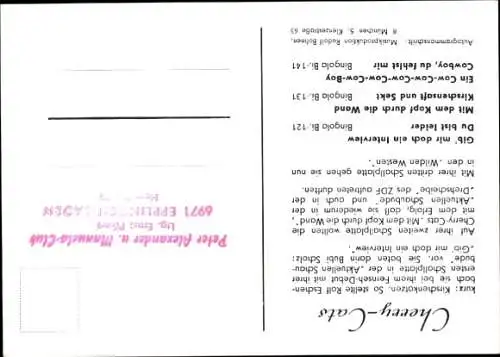 Cherry-Cats
kurz: Kirschenkatzen. So stellte Rolf Eschen-
bach sie bei ihrem Fernseh-Debut mit ihrer
ersten Schallplatte in der „Aktuellen Schau-
bude" vor. Sie boten darin Bubi Scholz:
„Gib' mir doch ein Interview".
Auf ihrer zweiten Schallplatte wollten die
Cherry-Cats „Mit dem Kopf durch die Wand",
mit dem Erfolg, daß sie wiederum in der
„Aktuellen Schaubude" und auch in der
„Drehscheibe" des ZDF auftreten durften.
Mit ihrer dritten Schallplatte gehen sie nun
in den „Wilden Westen".
Gib' mir doch ein Interview
Du bist leider Bingola Bi. 121
Mit dem Kopf durch die Wand
Kirschensaft und Sekt Bingola Bi. 131
Ein Cow-Cow-Cow-Cow-Cow-Boy
Cowboy, du fehlst mir Bingola Bi. 141
Autogrammanschrift: Musikproduktion Rudolf Bohsen,
8 München 5, Klenzestraße 63
Peter Alexander u. Manuela-Club
Ltg. Ernst
6971 EPPLINGEN/BADEN